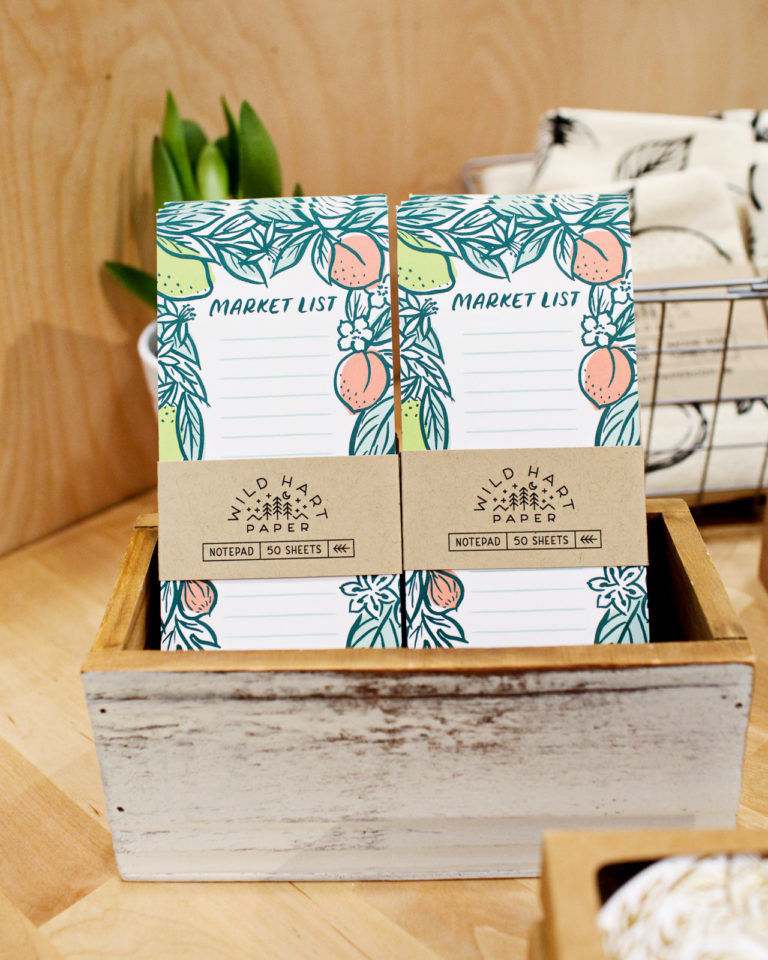 MARKET LIST
WILD HART
PAPER
NOTEPAD 50 SHEETS
MARKET LIST
WILD HART
PAPER
NOTEPAD 50 SHEETS